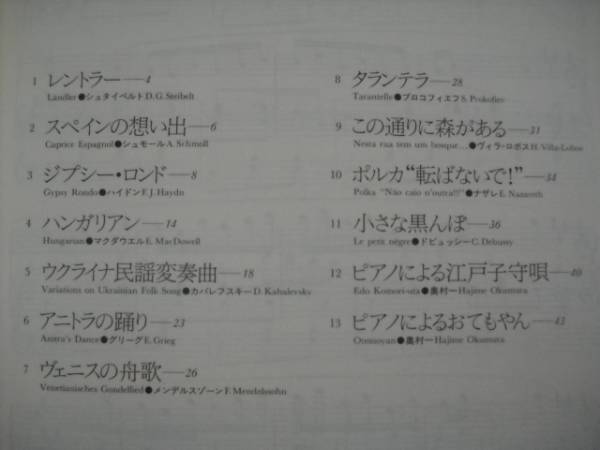 1 レントラー—4
Ländler●シュタイベルトD.G.Steibelt
2 スペインの想い出—6
Caprice Espagnol●シュモールA.Schmoll
3 ジプシー・ロンド—8
Gypsy Rondo●ハイドンF.J.Haydn
4 ハンガリアン—14
Hungarian●マクダウエルE.MacDowell
5 ウクライナ民謡変奏曲—18
Variations on Ukrainian Folk Song●カバレフスキーD.Kabalevsky
6 アニトラの踊り—23
Anitra's Dance●グリーグE.Grieg
7 ヴェニスの舟歌—26
Venetianisches Gondellied●メンデルスゾーンF.Mendelssohn
8 タランテラ—28
Tarantelle●プロコフィエフS.Prokofiev
9 この通りに森がある—31
Nesta rua tem um bosque...●ヴィラ・ロボスH.Villa-Lobos
10 ポルカ“転ばないで!”—34
Polka "Não caio n'outra!!!"●ナザレE.Nazareth
11 小さな黒んぼ—36
Le petit nègre●ドビュッシーC.Debussy
12 ピアノによる江戸子守唄—40
Edo Komori-uta●奥村一Hajime Okumura
13 ピアノによるおてもやん—43
Otemoyan●奥村一Hajime Okumura